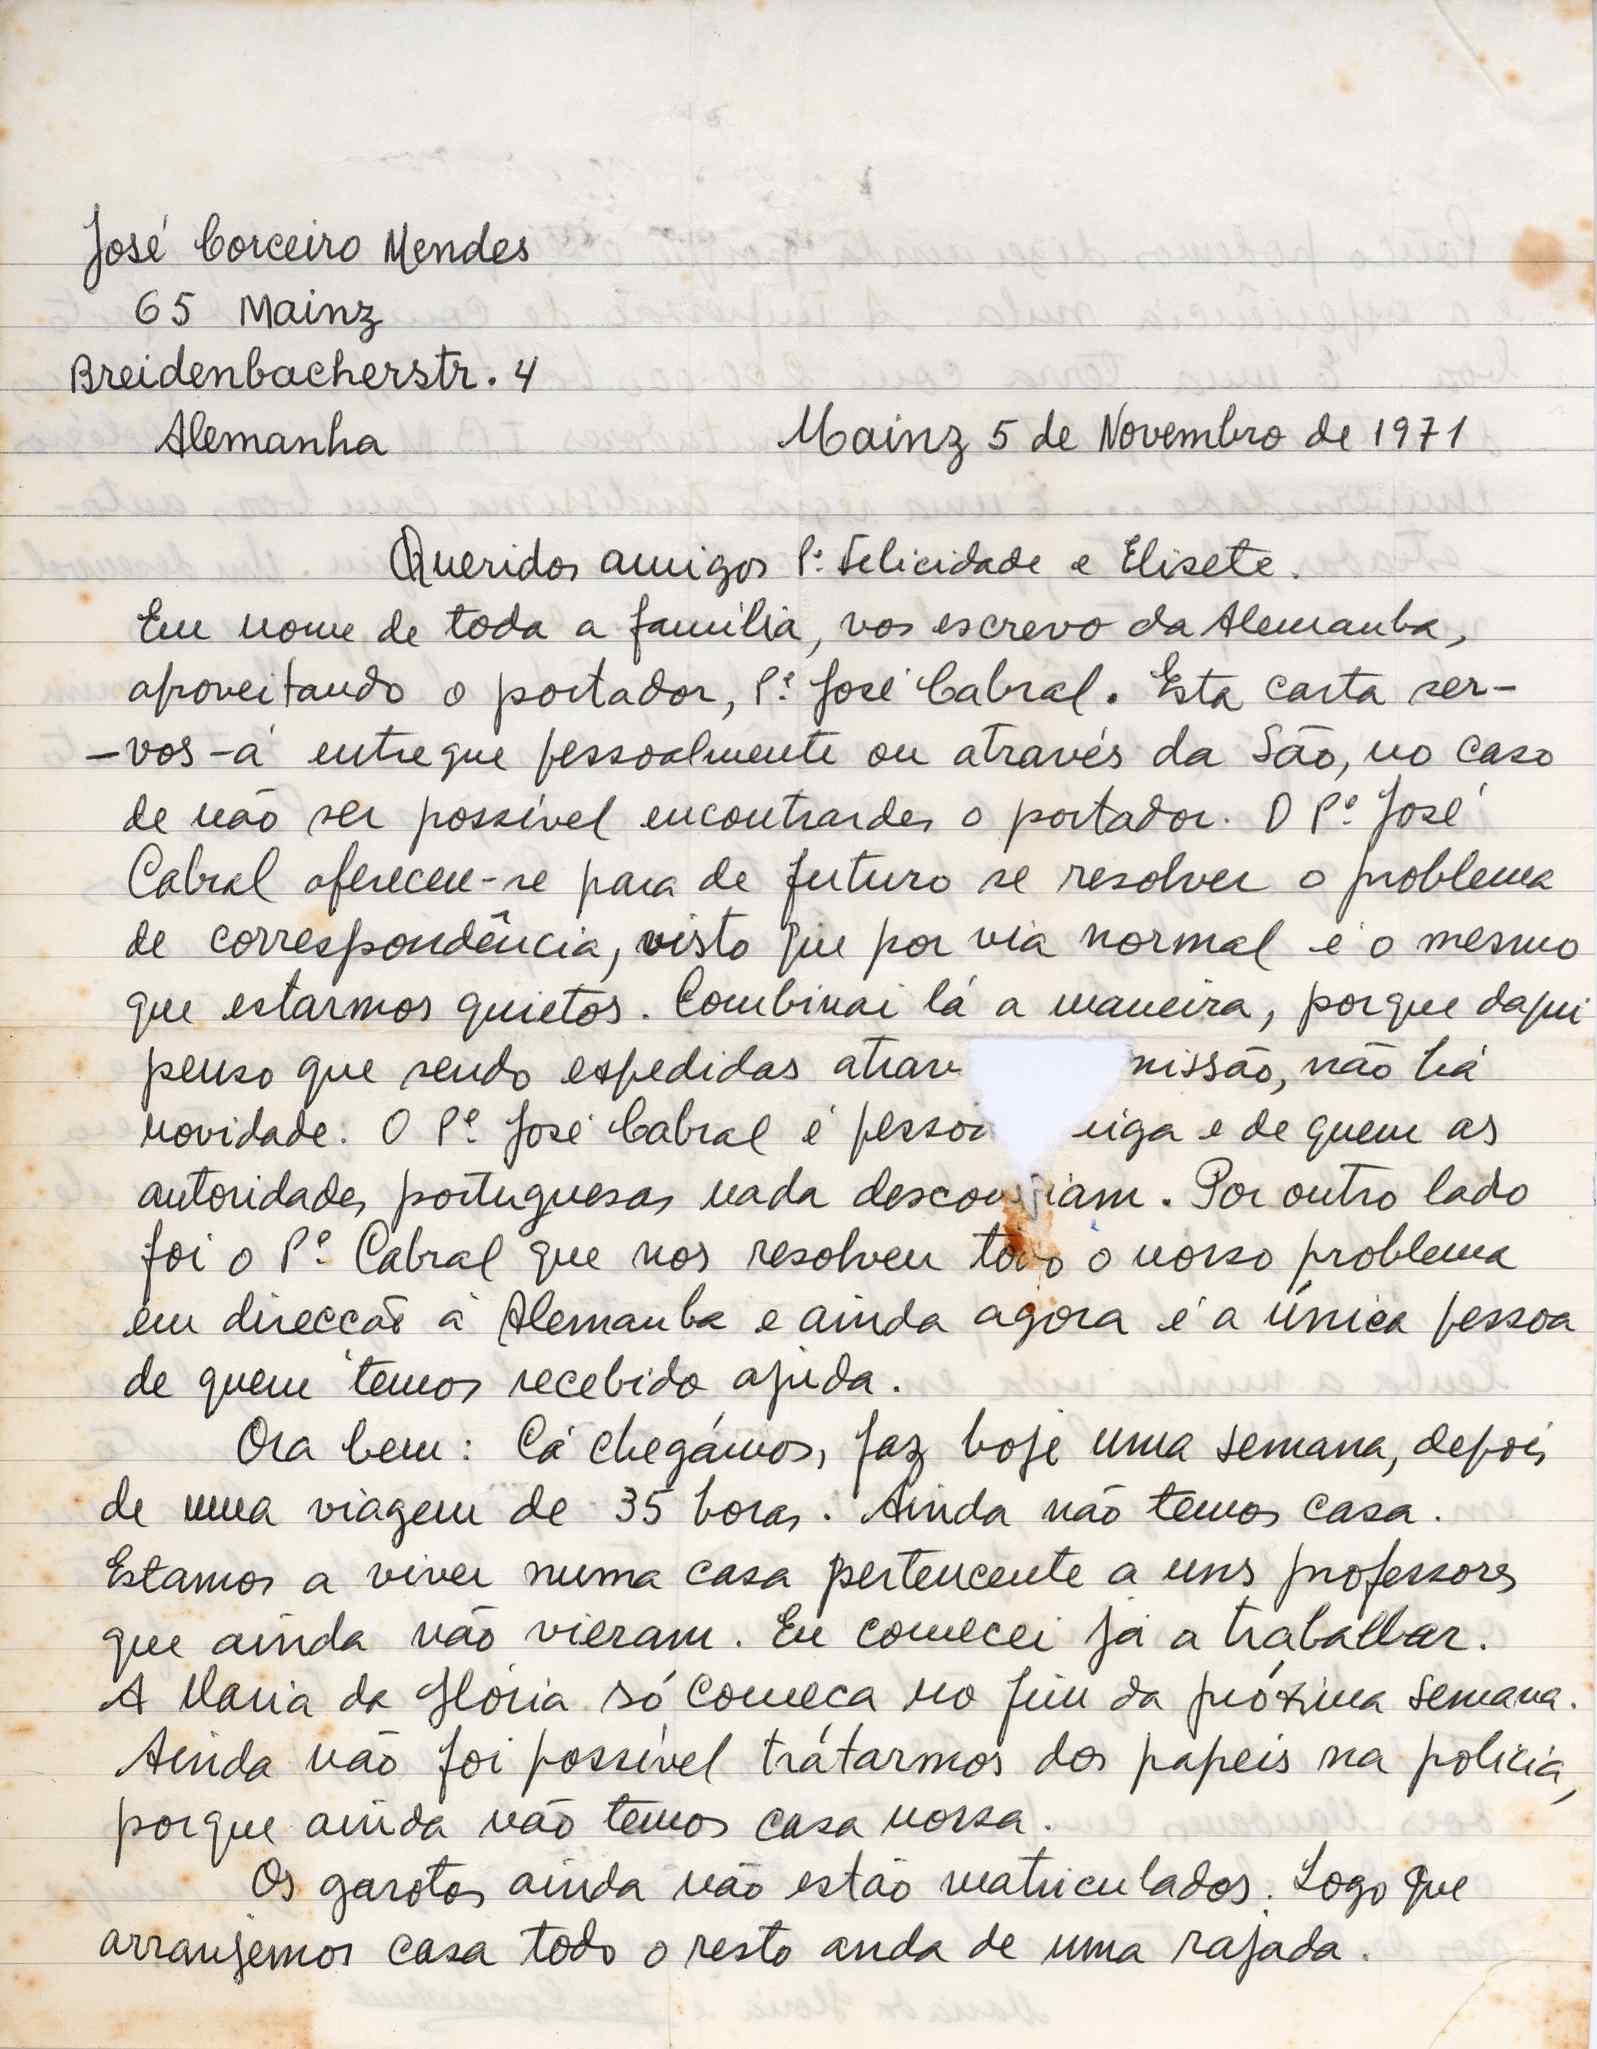 José Corceiro Mendes
65 Mainz
Breidenbacherstr. 4
Alemanha
Mainz 5 de Novembro de 1971
Queridos amigos P.e Felicidade e Elisete.
Em nome de toda a família, vos escrevo da Alemanha,
aproveitando o portador, P.e José Cabral. Esta carta ser-
-vos-á entregue pessoalmente ou através da São, no caso
de não ser possível encontrardes o portador. O P.e José
Cabral ofereceu-se para de futuro se resolver o problema
de correspondência, visto que por via normal é o mesmo
que estarmos quietos. Combinai lá a maneira, porque daqui
penso que sendo espedidas atrav missão, não há
novidade. O P.e José Cabral é pesso iga e de quem as
autoridades portuguesas nada desconfiam. Por outro lado
foi o P.e Cabral que nos resolveu todo o nosso problema
em direcção à Alemanha e ainda agora é a única pessoa
de quem temos recebido ajuda.
Ora bem: Cá chegámos, faz hoje uma semana, depois
de uma viagem de 35 horas. Ainda não temos casa.
Estamos a viver numa casa pertencente a uns professores
que ainda não vieram. Eu comecei já a trabalhar.
A Maria da Glória só começa no fim da próxima semana.
Ainda não foi possível trátarmos dos papeis na policia,
porque ainda não temos casa nossa.
Os garotos ainda não estão matriculados. Logo que
arranjemos casa todo o resto anda de uma rajada.